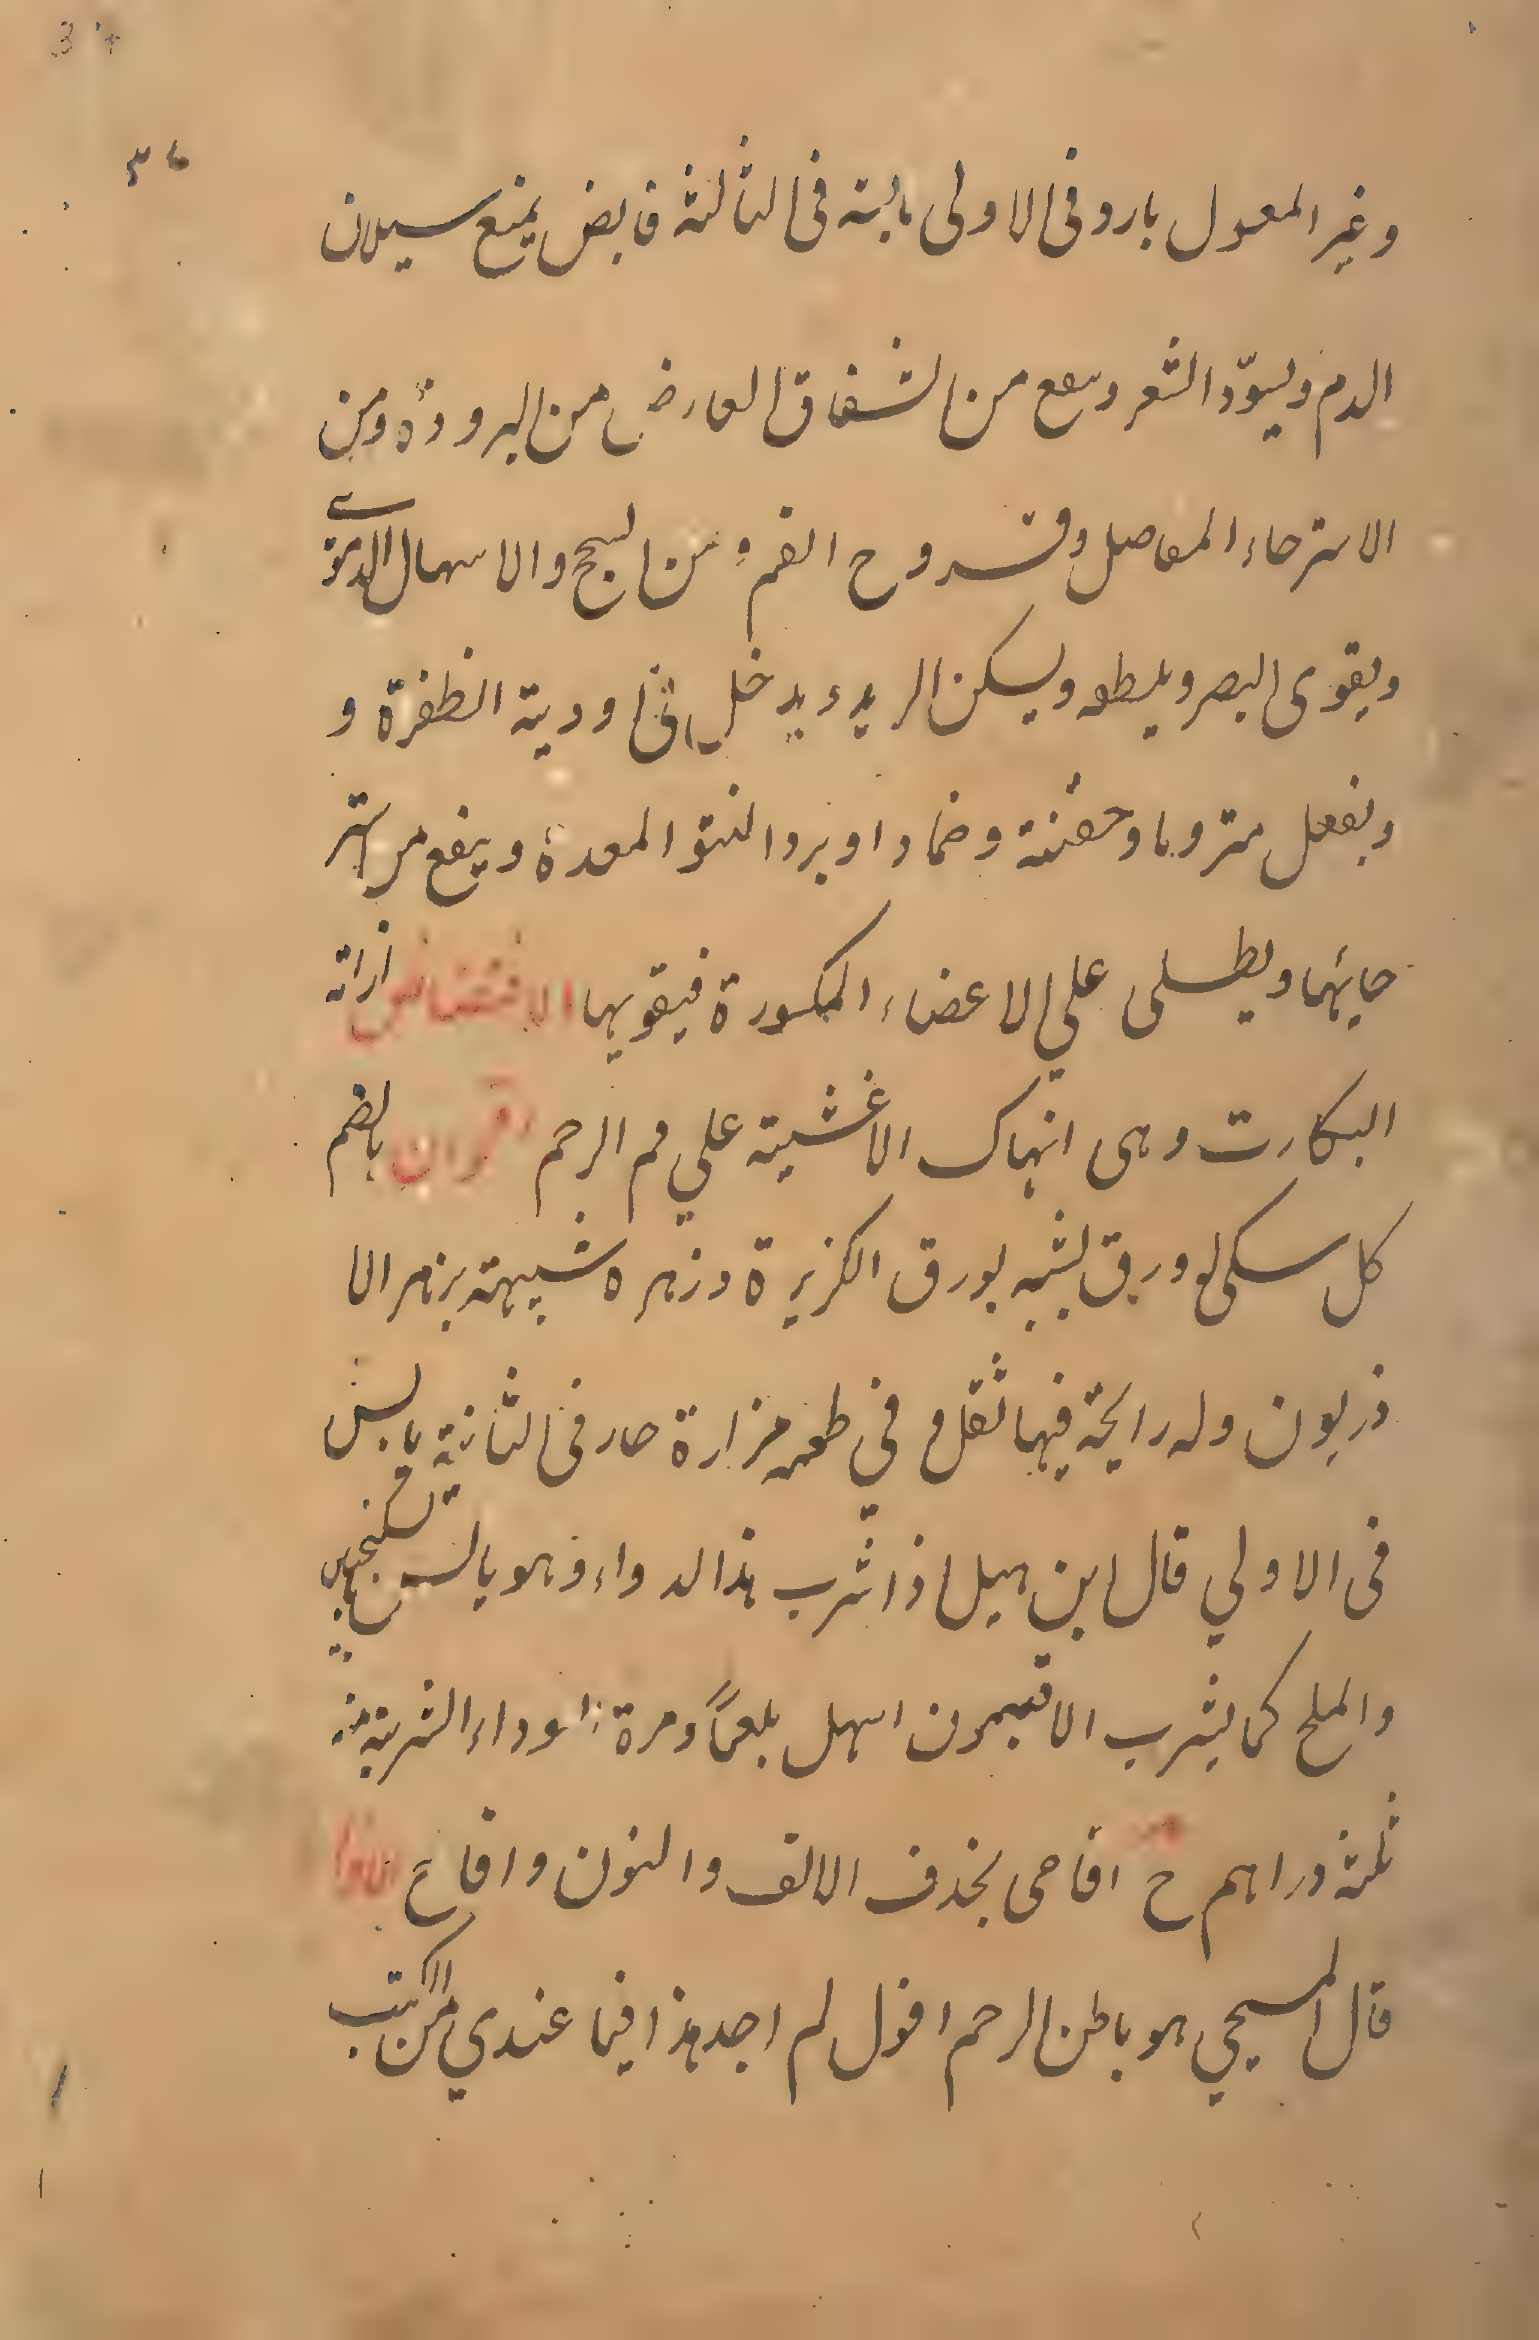 34
٣٤
وغير المعول بارد فى الاولى يابسة فى الثالثة قابض يمنع سيلان
الدم ويسوّد الشعر وينفع من الشقاق العارض من البرودة ومن
الاسترخاء المفاصل وقروح الفم ومن السحج والاسهال الدموى
ويقوى البصر ويلطفه ويسكن الرمد ويدخل فى اودية الظفرة و
ويفعل مشروبا وحقنة وضمادا ويرد النتو المعدة وينفع من استر
خائها ويطلى علي الاعضاء المكسورة فيقويها الافتضاض ازالة
البكارت وهى انهاك الاغشية علي فم الرحم اقحوان بالضم
كل سكى لو ورق يشبه بورق الكزبرة وزهره شبيهة بزهر الا
ذريون وله رايحة فيها ثقل و في طعمه مزارة حار فى الثانية يابس
فى الاولي قال ابن هبل اذا شرب هذا الدواء وهو يابس بالسكنجبين
والملح كما يشرب الافتيمون اسهل بلغمًا ومرة سوداء الشربة منه
ثلثة دراهم ح اقاحى بحذف الالف والنون واقاح
قال المسيحي هو باطن الرحم اقول لم اجد هذا فيما عندي من الكتب